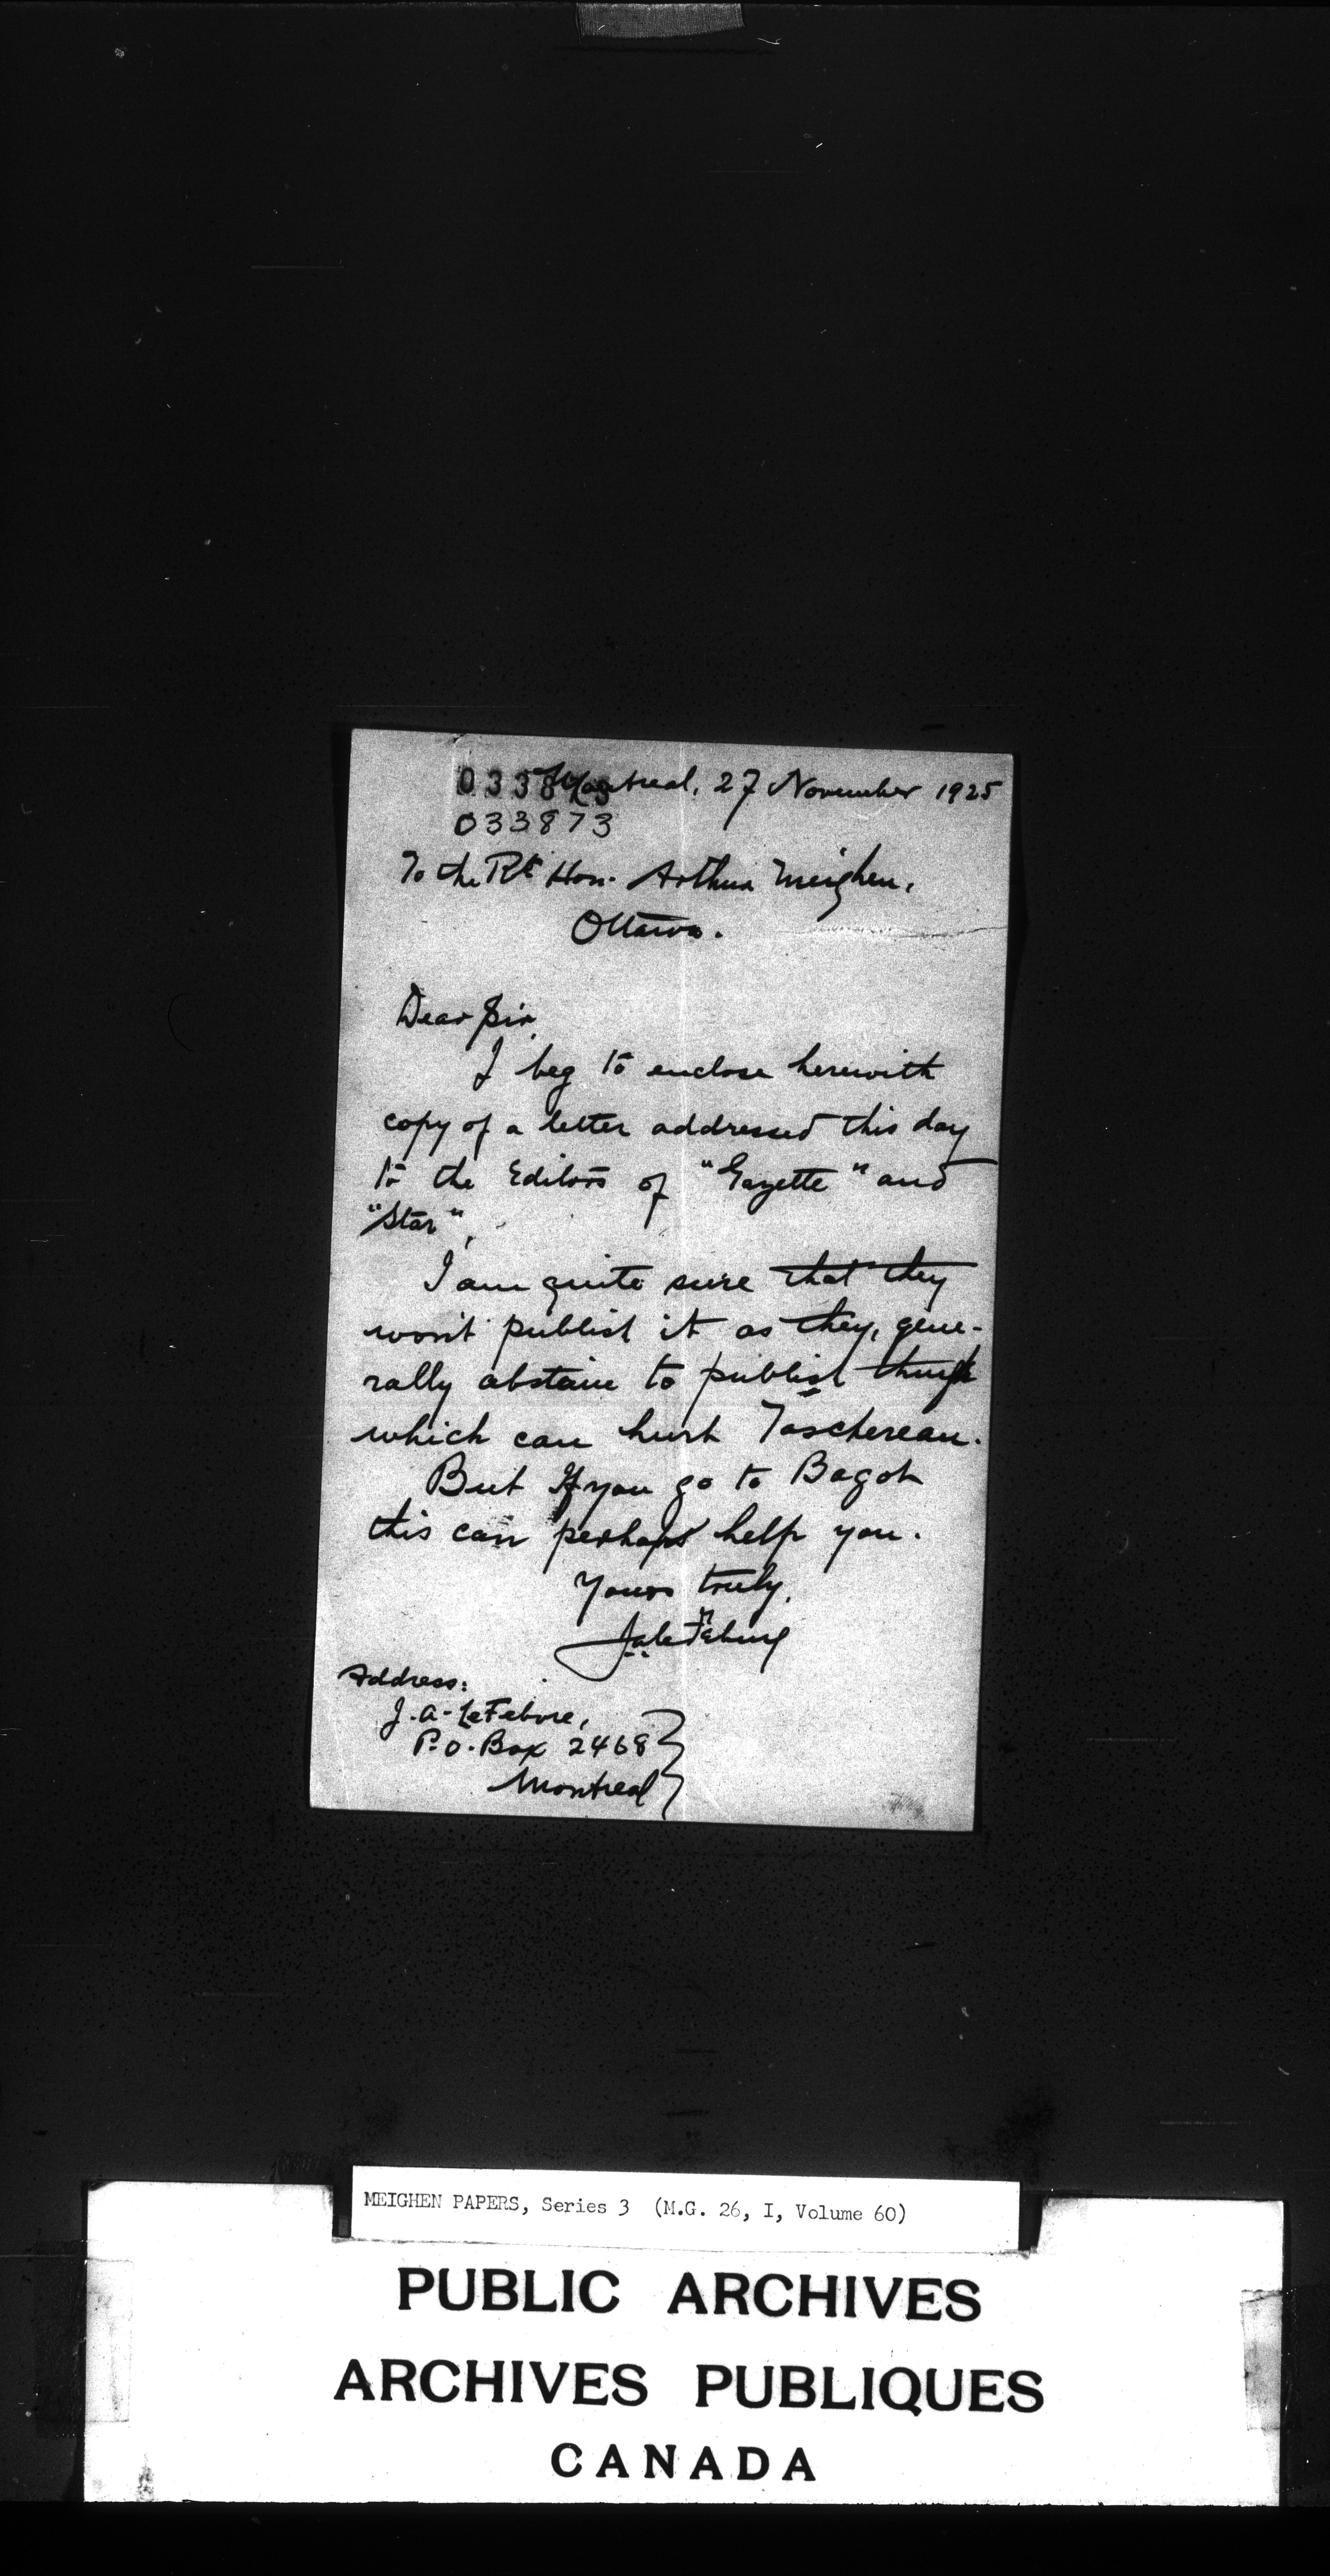 Montreal, 27 November 1925
033873
To the Rt Hon. Arthur Meighen,
Ottawa.
Dear Sir,
I beg to enclose herewith
copy of a letter addressed this day
to the Editors of "Gazette" and
"Star".
I am quite sure that they
won't publish it as they, gene-
rally abstain to publish things
which can hurt Taschereau.
But If you go to Bagot
this can perhaps help you.
Yours truly,
Address:
J.A. LeFebvre,
P.O. Box 2468
Montreal
MEIGHEN PAPERS, Series 3 (M.G. 26, I, Volume 60)
PUBLIC ARCHIVES
ARCHIVES PUBLIQUES
CANADA